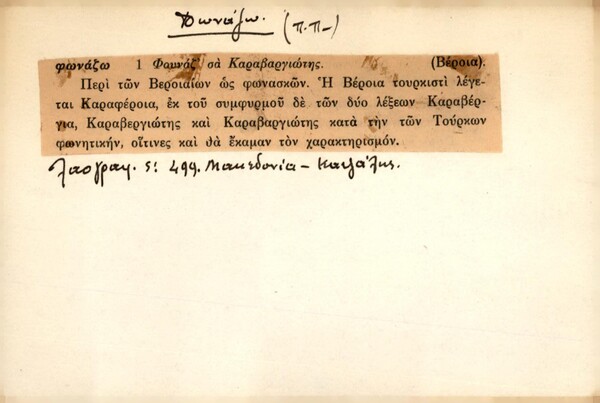 Φωνάζω. (π.π–)
φωνάζω 1 Φουνάζ' σὰ Καραβαργιώτης. (Βέροια).
Περὶ τῶν Βεροιαίων ὡς φωνασκῶν. Ἡ Βέροια τουρκιστὶ λέγε-
ται Καραφέροια, ἐκ τοῦ συμφυρμοῦ δὲ τῶν δύο λέξεων Καραβέρ-
για, Καραβεργιώτης καὶ Καραβαργιώτης κατὰ τὴν τῶν Τούρκων
φωνητικήν, οἵτινες καὶ θὰ ἔκαμαν τὸν χαρακτηρισμόν.
Λαογραφ. ς! 499. Μακεδονία –